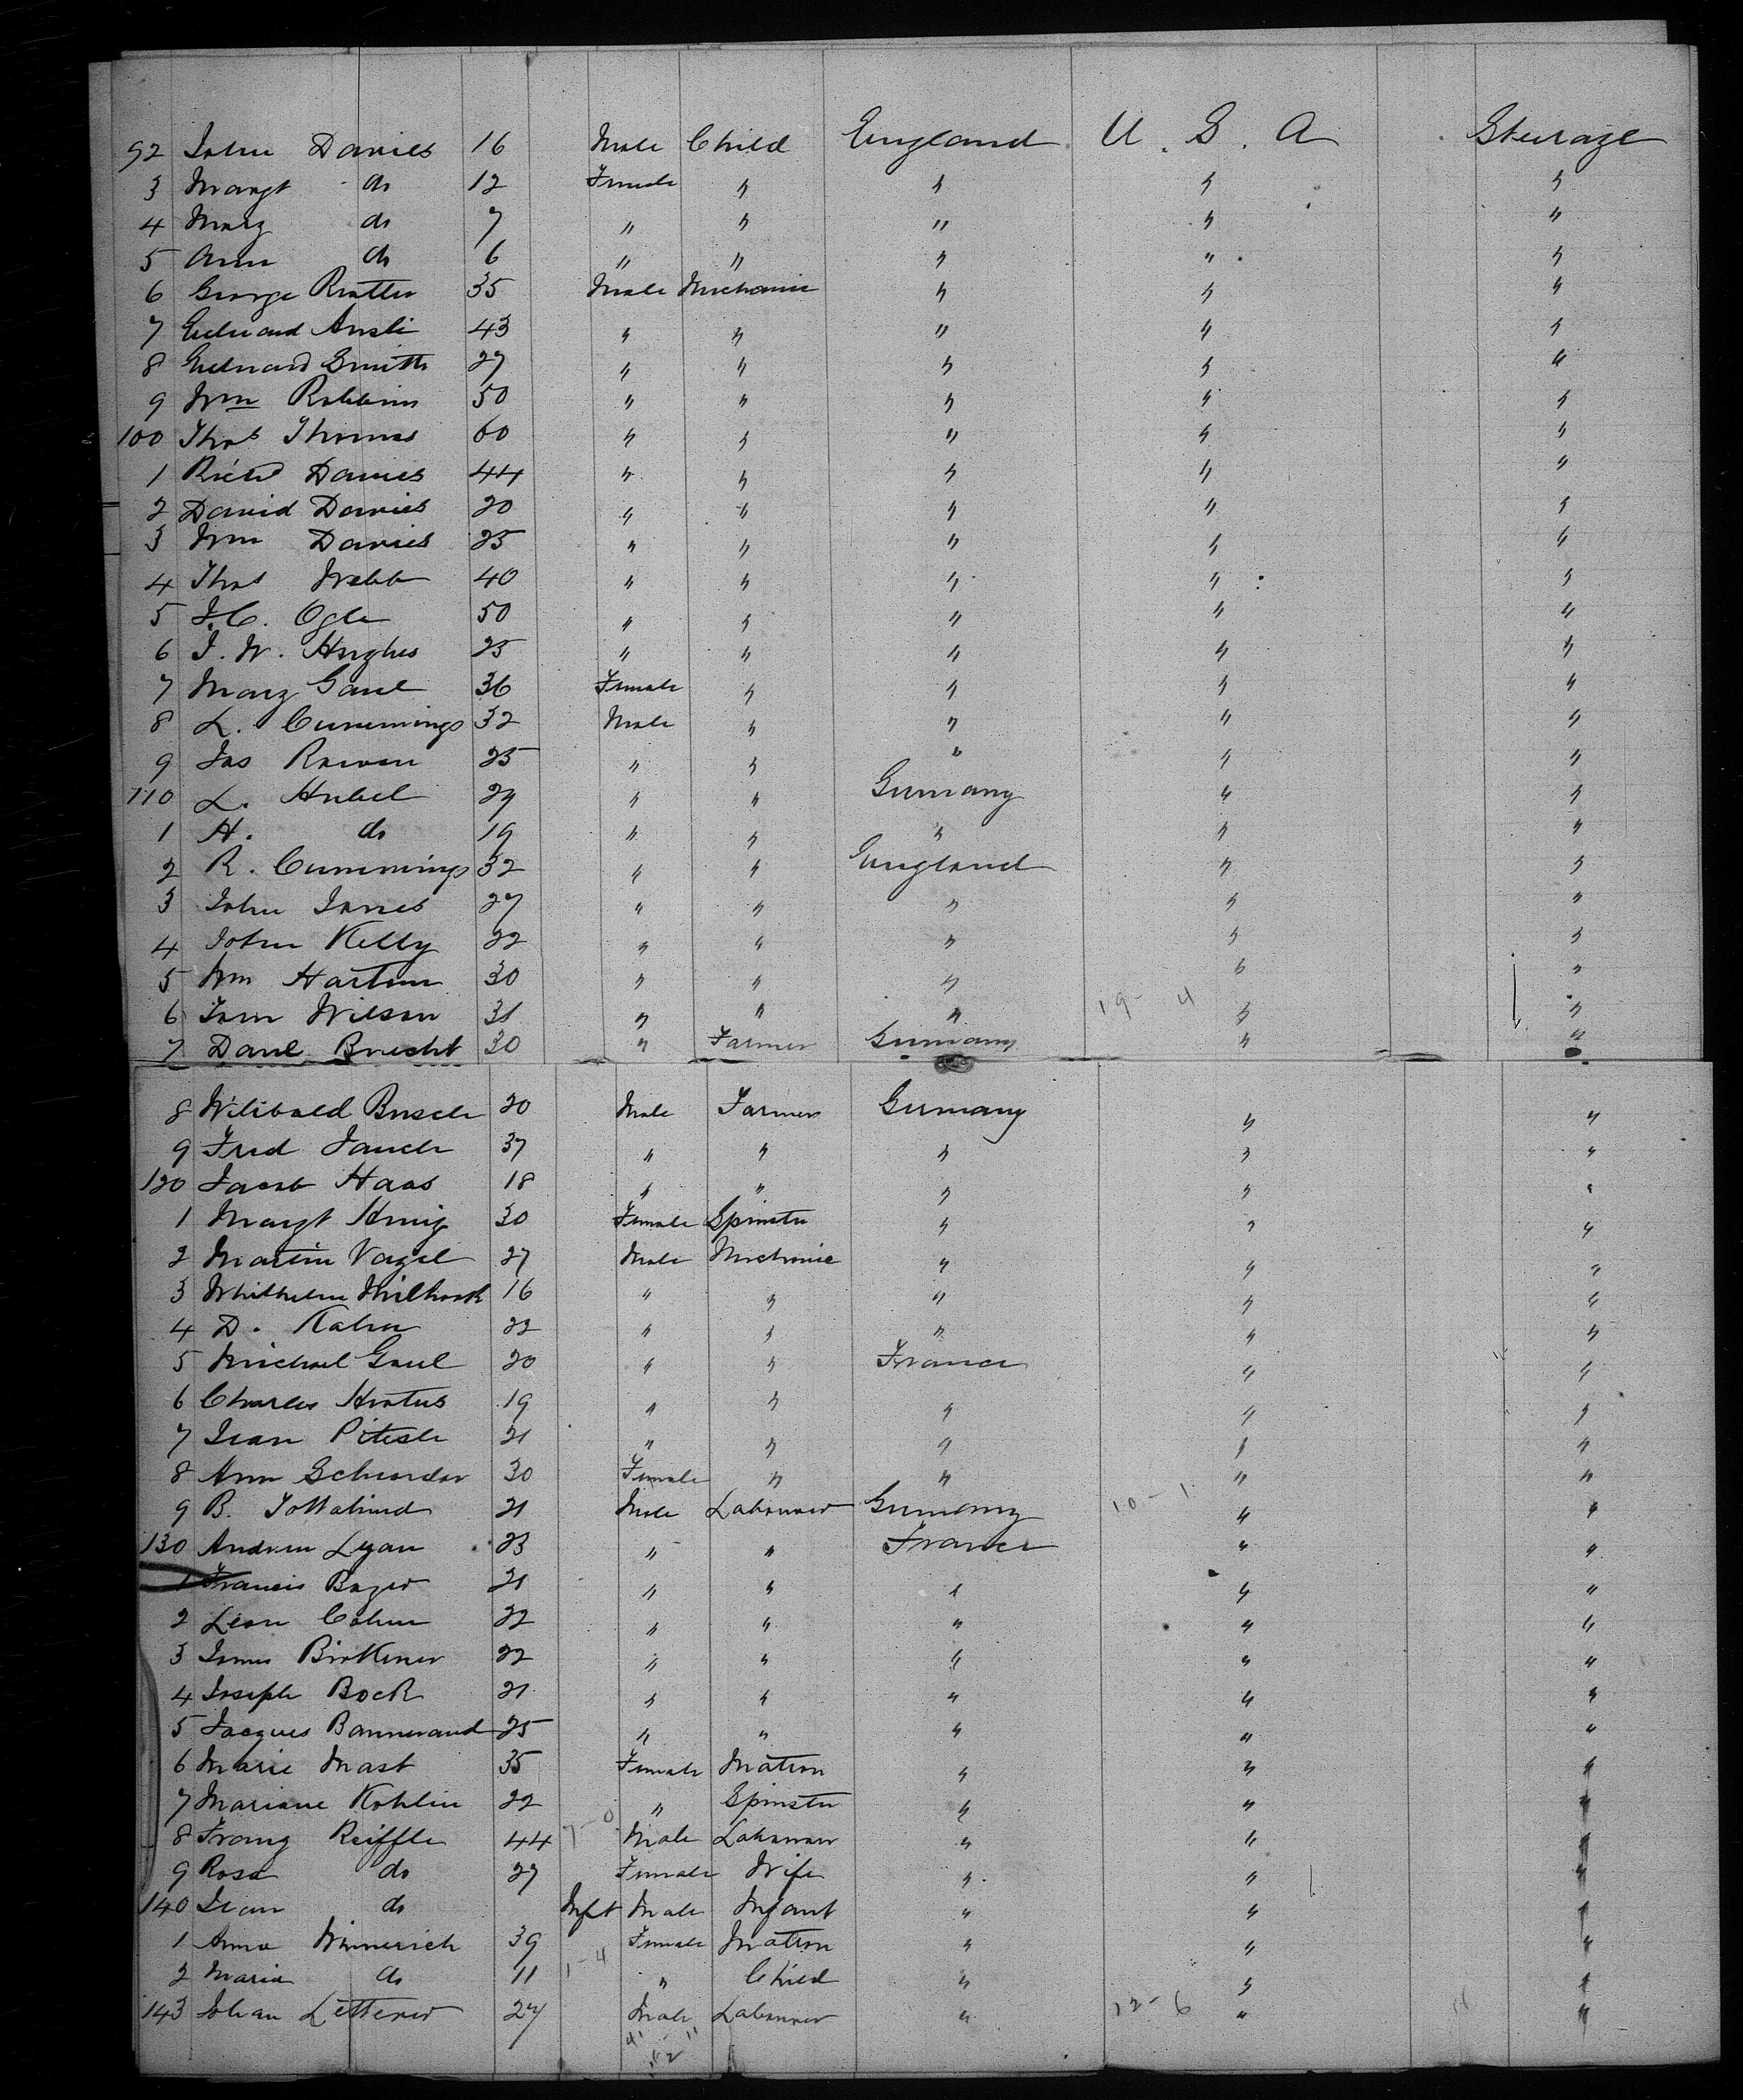 92 John Davies 16 Male Child England U. S. A Steerage
3 Margt do 12 Female " " " "
4 Mary do 7 " " " " "
5 Ann do 6 " " " " "
6 George Rutter 35 Male Mechanic " " "
7 Edward 43 " " " " "
8 Edward Smith 27 " " " " "
9 Wm Robbins 50 " " " " "
100 Thos Thomas 60 " " " " "
1 Richd Davies 44 " " " " "
2 David Davies 20 " " " " "
3 Wm Davies 25 " " " " "
4 Thos Webb 40 " " " " "
5 J.C. Ogle 50 " " " " "
6 J. W. Hughes 25 " " " " "
7 Mary Gaul 36 Female " " " "
8 L. Cummings 32 Male " " " "
9 Jas Rowan 25 " " " " "
110 L. Hubel 29 " " Germany " "
1 H. do 19 " " " " "
2 R. Cummings 32 " " England " "
3 John Jones 27 " " " " "
4 John Kelly 22 " " " " "
5 Wm Harton 30 " " " " "
6 Tom Wilson 31 " " " 19 - 4 " "
7 Danl Brecht 30 " Farmer Germany " "
8 Wilibald Busch 20 Male Farmer Germany " "
9 Fred Jauch 37 " " " " "
120 Jacob Haas 18 " " " " "
1 Margt 30 Female Spinster " " "
2 Martin Vagel 27 Male Mechanic " " "
3 Whilhelm 16 " " " " "
4 D. Kahn 22 " " " " "
5 Michael Gaul 20 " " France " "
6 Charles 19 " " " " "
7 Jean 21 " " " " "
8 Ann 30 Female " " " "
9 B. 21 Male Labourer Germany 10 - 1 " "
130 Andrew Lyan 23 " " France " "
1 Francis 21 " " " " "
2 Leon Cohn 22 " " " " "
3 James 22 " " " " "
4 Joseph Bock 21 " " " " "
5 Jacques 25 " " " " "
6 Marie Mast 35 Female Matron " " "
7 Mariane Kohlin 22 " Spinster " " "
8 Franz Reiffle 44 7 - 0 Male Labourer " " "
9 Rosa do 27 Female Wife " " "
140 Jean do Inft Male Infant " " "
1 Anna Winnerich 39 Female Matron " " "
2 Maria do 11 1 - 4 " Child " " "
143 Johan Letterer 27 Male Labourer " 12 - 6 " "